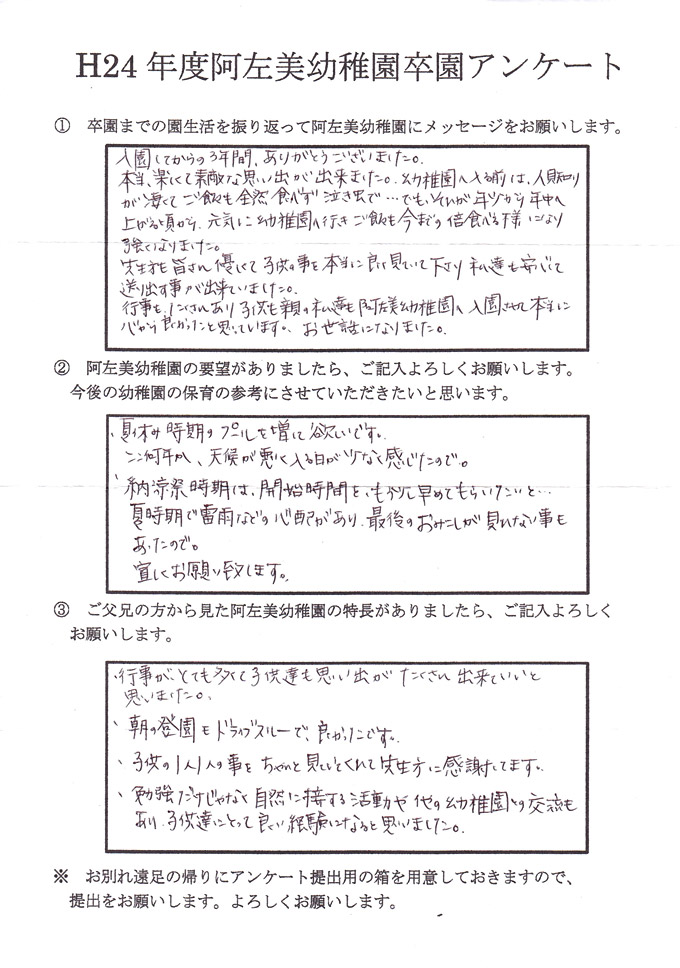 H24 年度阿左美幼稚園卒園アンケート
① 卒園までの園生活を振り返って阿左美幼稚園にメッセージをお願いします。
入園してからの3年間、ありがとうございました。
本当、楽しくて素敵な思い出が出来ました。幼稚園へ入る前は、人見知り
が凄くてご飯も全然食べず泣き虫で…でも、それが年少から年中へ
上がる頃から、元気に幼稚園へ行きご飯も今までの倍食べる様になり
強くなりました。
先生方も皆さん優しくて子供の事を本当に良く見ていて下さり私達も安心して
送り出す事が出来ていました。
行事もたくさんあり子供も親の私達も阿左美幼稚園へ入園させて本当に
心から良かったと思っています。お世話になりました。
② 阿左美幼稚園の要望がありましたら、ご記入よろしくお願いします。
今後の幼稚園の保育の参考にさせていただきたいと思います。
・夏休み時期のプールを増して欲しいです。
ここ何年か、天候が悪く入る日が少なく感じたので。
・納涼祭時期は、開始時間を、もう少し早めてもらいたいと…
夏時期で雷雨などの心配があり、最後のおみこしが見れない事も
あったので。
宜しくお願い致します。
③ ご父兄の方から見た阿左美幼稚園の特長がありましたら、ご記入よろしく
お願いします。
・行事が、とても多くて子供達も思い出がたくさん出来ていいと
思いました。
・朝の登園もドライブスルーで、良かったです。
・子供の1人1人の事をちゃんと見ていてくれて先生方に感謝してます。
・勉強だけじゃなく自然に接する活動や他の幼稚園との交流も
あり、子供達にとって良い経験になると思いました。
※ お別れ遠足の帰りにアンケート提出用の箱を用意しておきますので、
提出をお願いします。よろしくお願いします。